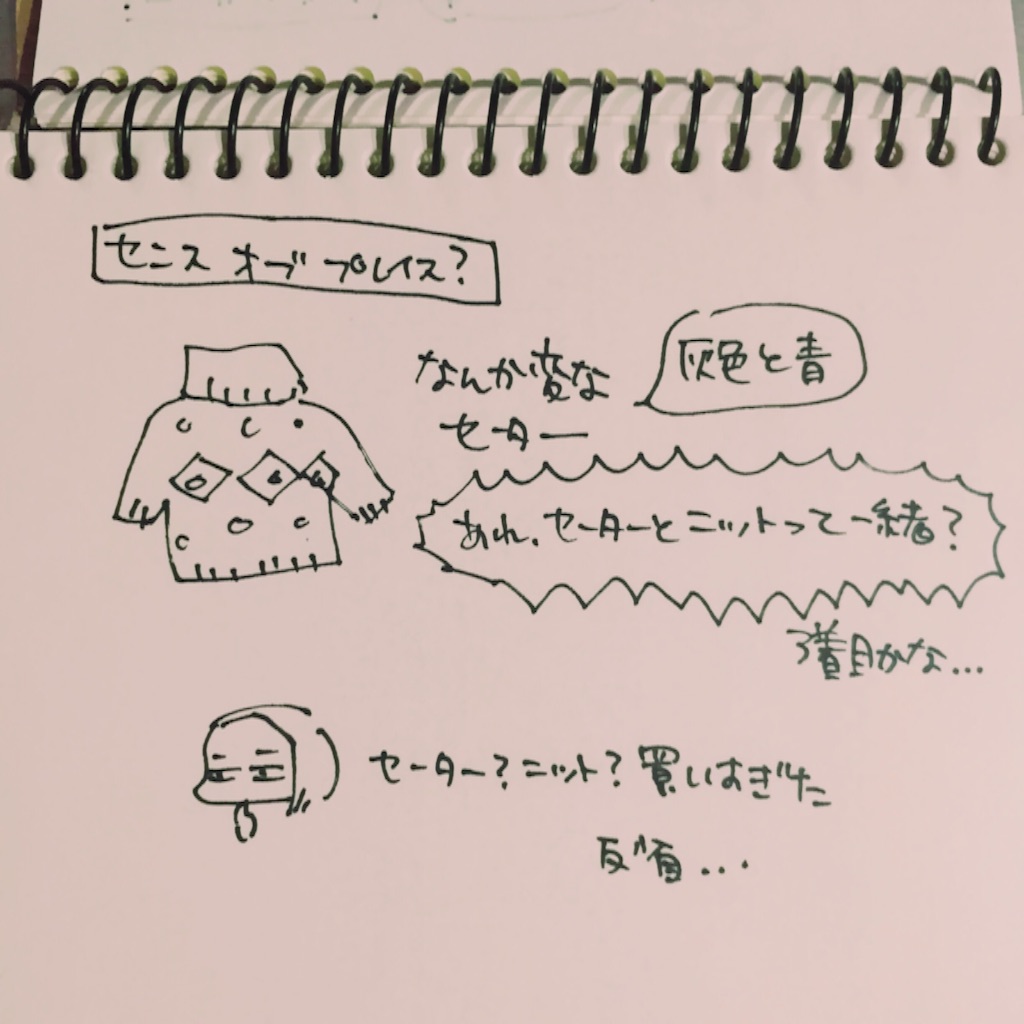 センス オブ プレイス?
なんか変な
セーター
灰色と青
あれ、セーターとニットって一緒?
3着目かな...
セーター?ニット?買いすぎた
反省...